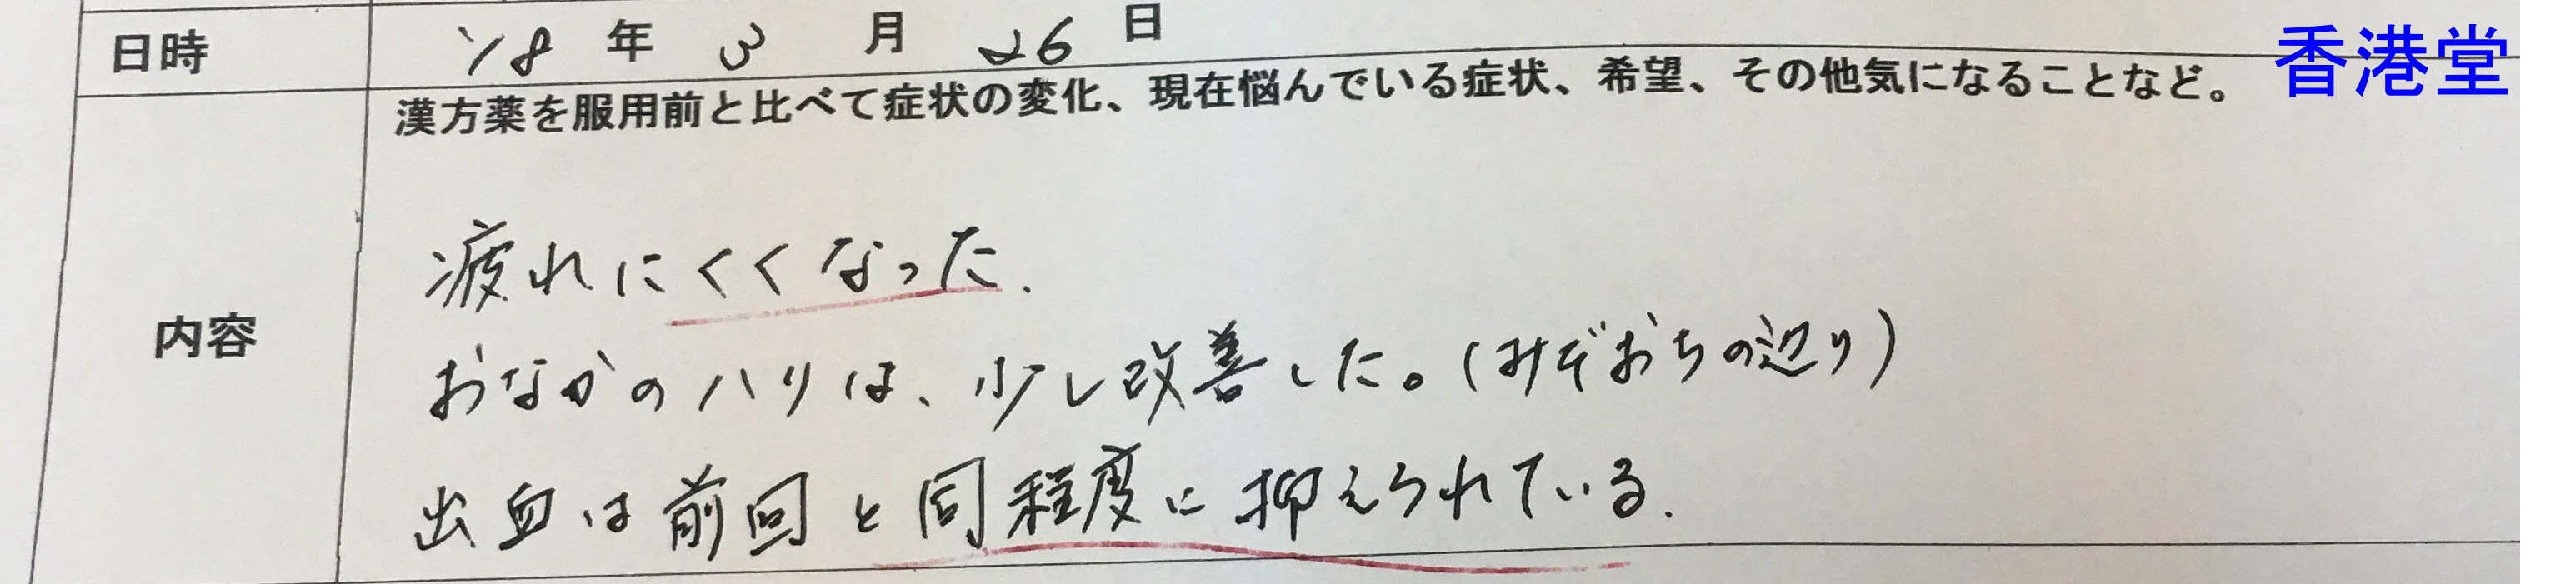 日時 '18 年 3 月 26 日
香港堂
漢方薬を服用前と比べて症状の変化、現在悩んでいる症状、希望、その他気になることなど。
内容
疲れにくくなった.
おなかのハリは、少し改善した。(みぞおちの辺り)
出血は前回と同程度に抑えられている.